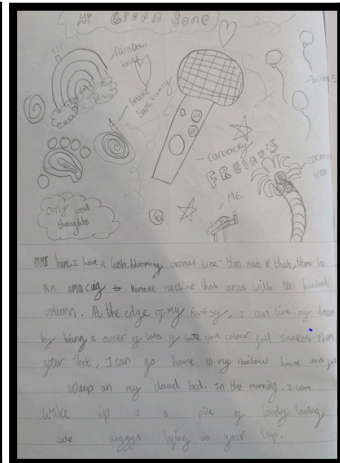 My Green Zone
rainbow house
Snake sanctuary
Balloons
coconut tree
careaoky
FREIND'S
ME
only good thoughts
over here I have a lush, blooming, coconut tree. then next to that, there is
an amazing karaoke machine that areas with 120 hundred
volumn. At the edge of my fantasy, I can live my dream
by being a owner of lots of cute one colour just snakes. Then
after that, I can go home to my rainbow house and just
asleep on my cloud bed. In the morning, I can
wake up to a pile of lovely loving,
cute doggys lying on your lap.